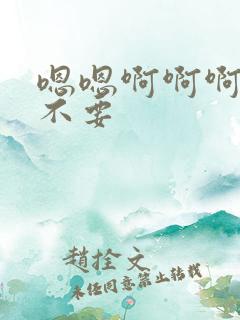 嗯嗯啊啊啊
不要
趙拴文
未经同意禁止转载